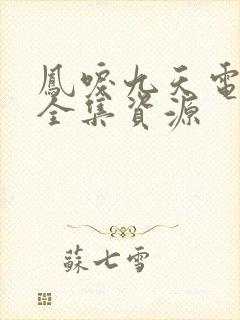 鳳唳九天電
全集資源
蘇七雪